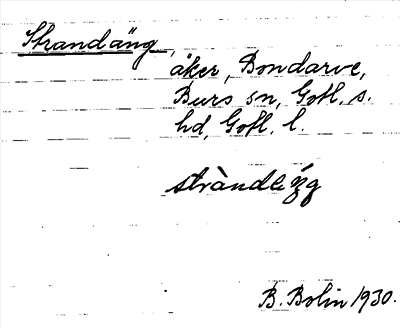 Strandäng,
åker, Bondarve,
Burs sn, Gotl. s.
hd, Gotl. l.
B. Bolin 1930.